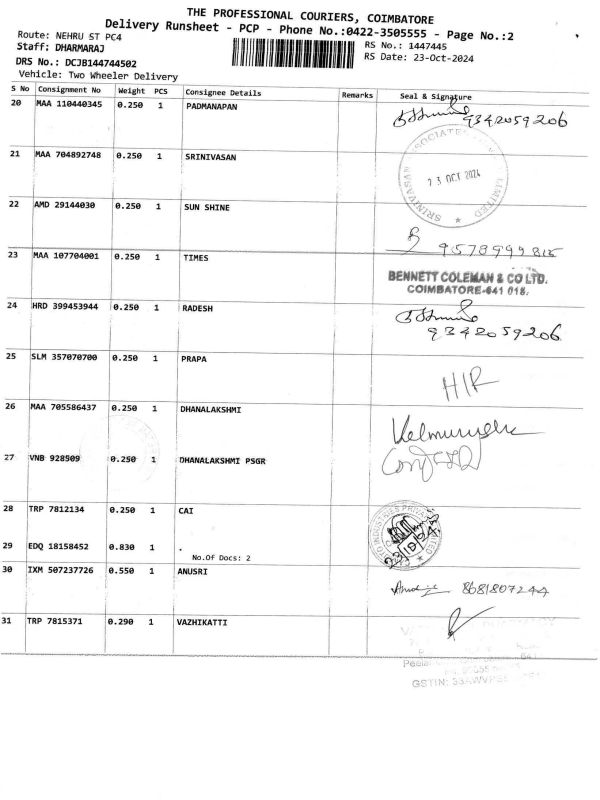 THE PROFESSIONAL COURIERS, COIMBATORE
Delivery Runsheet - PCP - Phone No.:0422-3505555 - Page No.:2
Route: NEHRU ST PC4
RS No.: 1447445
Staff: DHARMARAJ
RS Date: 23-Oct-2024
DRS No.: DCJB144744502
Vehicle: Two Wheeler Delivery
S No Consignment No Weight PCS Consignee Details Remarks Seal & Signature
20 MAA 110440345 0.250 1 PADMANAPAN
9342059206
21 MAA 704892748 0.250 1 SRINIVASAN
SRINIVASAN LIMITED
23 OCT 2024
22 AMD 29144030 0.250 1 SUN SHINE
9578999815
23 MAA 107704001 0.250 1 TIMES
BENNETT COLEMAN & CO LTD.
COIMBATORE-641 018.
24 HRD 399453944 0.250 1 RADESH
9342059206
25 SLM 357070700 0.250 1 PRAPA
H/R
26 MAA 705586437 0.250 1 DHANALAKSHMI
27 VNB 928509 0.250 1 DHANALAKSHMI PSGR
28 TRP 7812134 0.250 1 CAI
29 EDQ 18158452 0.830 1 .
No.Of Docs: 2
30 IXM 507237726 0.550 1 ANUSRI
8681807244
31 TRP 7815371 0.290 1 VAZHIKATTI
GSTIN: